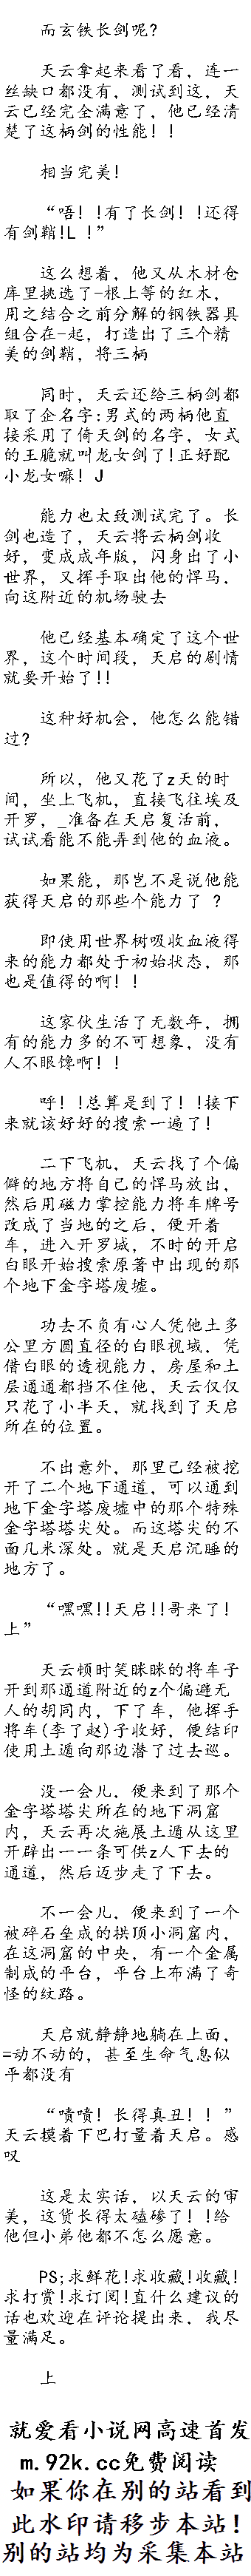 而玄铁长剑呢?
天云拿起来看了看，连一
丝缺口都没有，测试到这，天
云已经完全满意了，他已经清
楚了这柄剑的性能！！
相当完美!
“唔！!有了长剑！!还得
有剑鞘!L !”
这么想着，他又从木材仓
库里挑选了-根上等的红木，
用之结合之前分解的钢铁器具
组合在-起，打造出了三个精
美的剑鞘，将三柄
同时，天云还给三柄剑都
取了企名字:男式的两柄他直
接采用了倚天剑的名字，女式
的王脆就叫龙女剑了!正好配
小龙女嘛！J
能力也太致测试完了。长
剑也造了，天云将云柄剑收
好，变成成年版，闪身出了小
世界，又挥手取出他的悍马．
向这附近的机场驶去
他已经基本确定了这个世
界，这个时间段，天启的剧情
就要开始了!!
这种好机会，他怎么能错
过?
所以，他又花了z天的时
间，坐上飞机，直接飞往埃及
开罗，_准备在天启复活前，
试试看能不能弄到他的血液。
如果能，那岂不是说他能
获得天启的那些个能力了 ?
即使用世界树吸收血液得
来的能力都处于初始状态，那
也是值得的啊！！
这家伙生活了无数年，拥
有的能力多的不可想象，没有
人不眼馋啊！！
呼！!总算是到了！!接下
来就该好好的搜索一遍了!
二下飞机，天云找了个偏
僻的地方将自己的悍马放出，
然后用磁力掌控能力将车牌号
改成了当地的之后，便开着
车，进入开罗城，不时的开启
白眼开始搜索原著中出现的那
个地下金字塔废墟。
功去不负有心人凭他土多
公里方圆直径的白眼视域，凭
借白眼的透视能力，房屋和土
层通通都挡不住他，天云仅仅
只花了小半天，就找到了天启
所在的位置。
不出意外，那里己经被挖
开了二个地下通道，可以通到
地下金字塔废墟中的那个特殊
金字塔塔尖处。而这塔尖的不
面几米深处。就是天启沉睡的
地方了。
“嘿嘿!!天启!!哥来了!
上”
天云顿时笑眯眯的将车子
开到那通道附近的z个偏避无
人的胡同内，下了车，他挥手
将车(李了赵)子收好，便结印
使用土遁向那边潜了过去巡。
没一会儿，便来到了那个
金字塔塔尖所在的地下洞窟
内，天云再次施展土遁从这里
开辟出一一条可供z人下去的
通道，然后迈步走了下去。
不一会儿，便来到了一个
被碎石垒成的拱顶小洞窟内，
在这洞窟的中央，有一个金属
制成的平台，平台上布满了奇
怪的纹路。
天启就静静地躺在上面，
=动不动的，甚至生命气息似
乎都没有
“喷喷! 长得真丑！！”
天云摸着下巴打量着天启。感
叹
这是太实话，以天云的审
美，这货长得太磕碜了！!给
他但小弟他都不怎么愿意。
PS;求鲜花!求收藏!收藏!
求打赏!求订阅!直什么建议的
话也欢迎在评论提出来，我尽
量满足。
上
就爱看小说网高速首发
m.92k.cc免费阅读
如果你在别的站看到
此水印请移步本站!
别的站均为采集本站